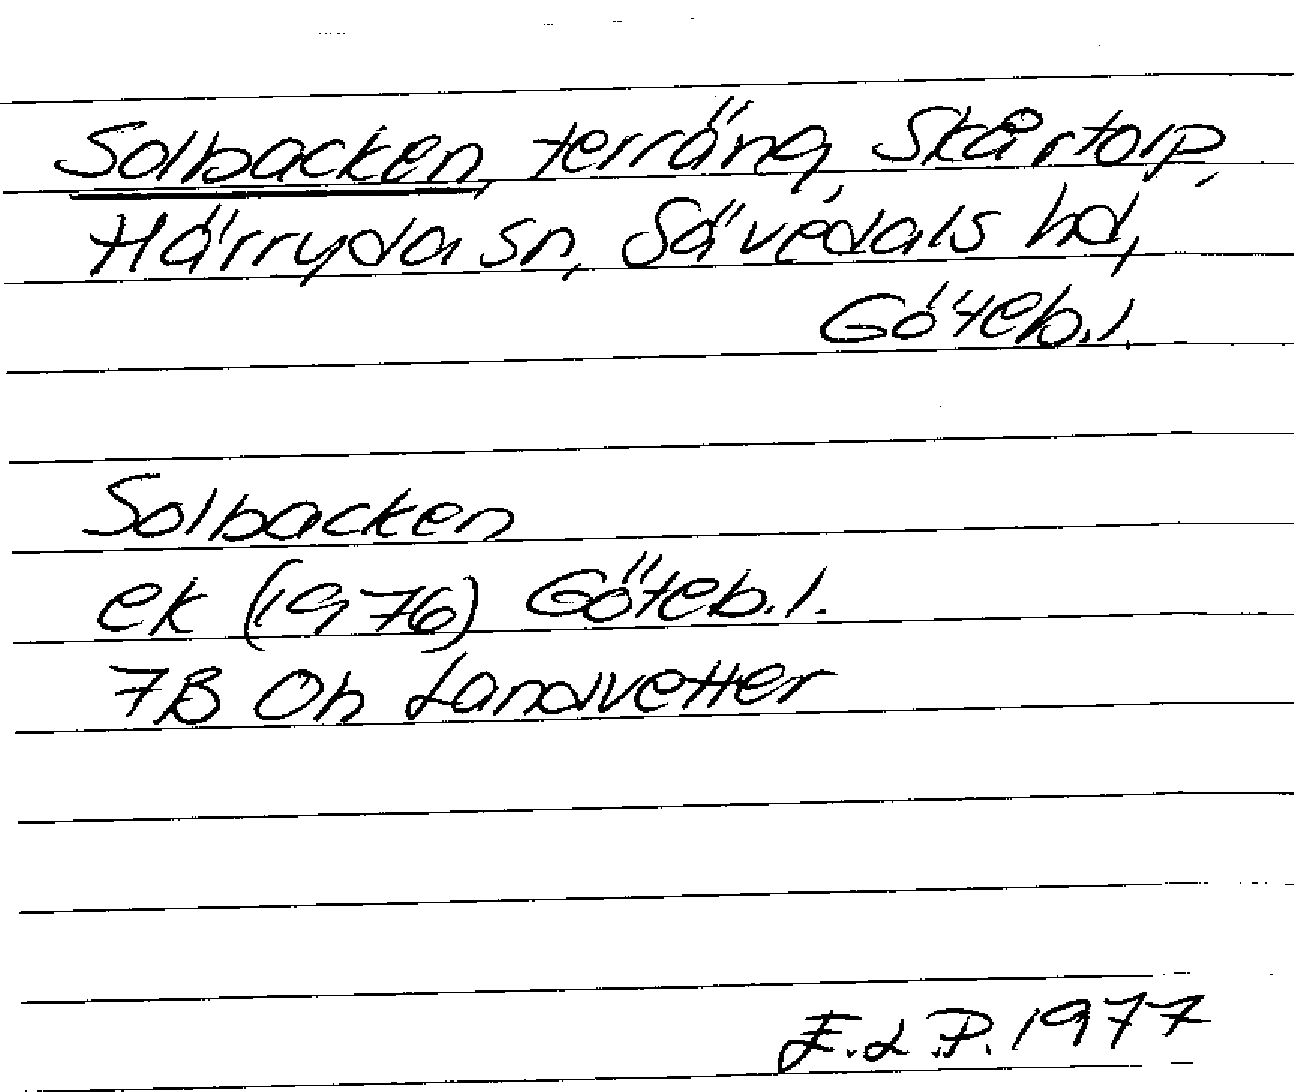 Solbacken, terräng, Skårtorp,
Härryda sn, Sävedals hd,
Göteb.l.
Solbacken
ek (1976) Göteb.l.
7B Oh Landvetter
E.L.P. 1977